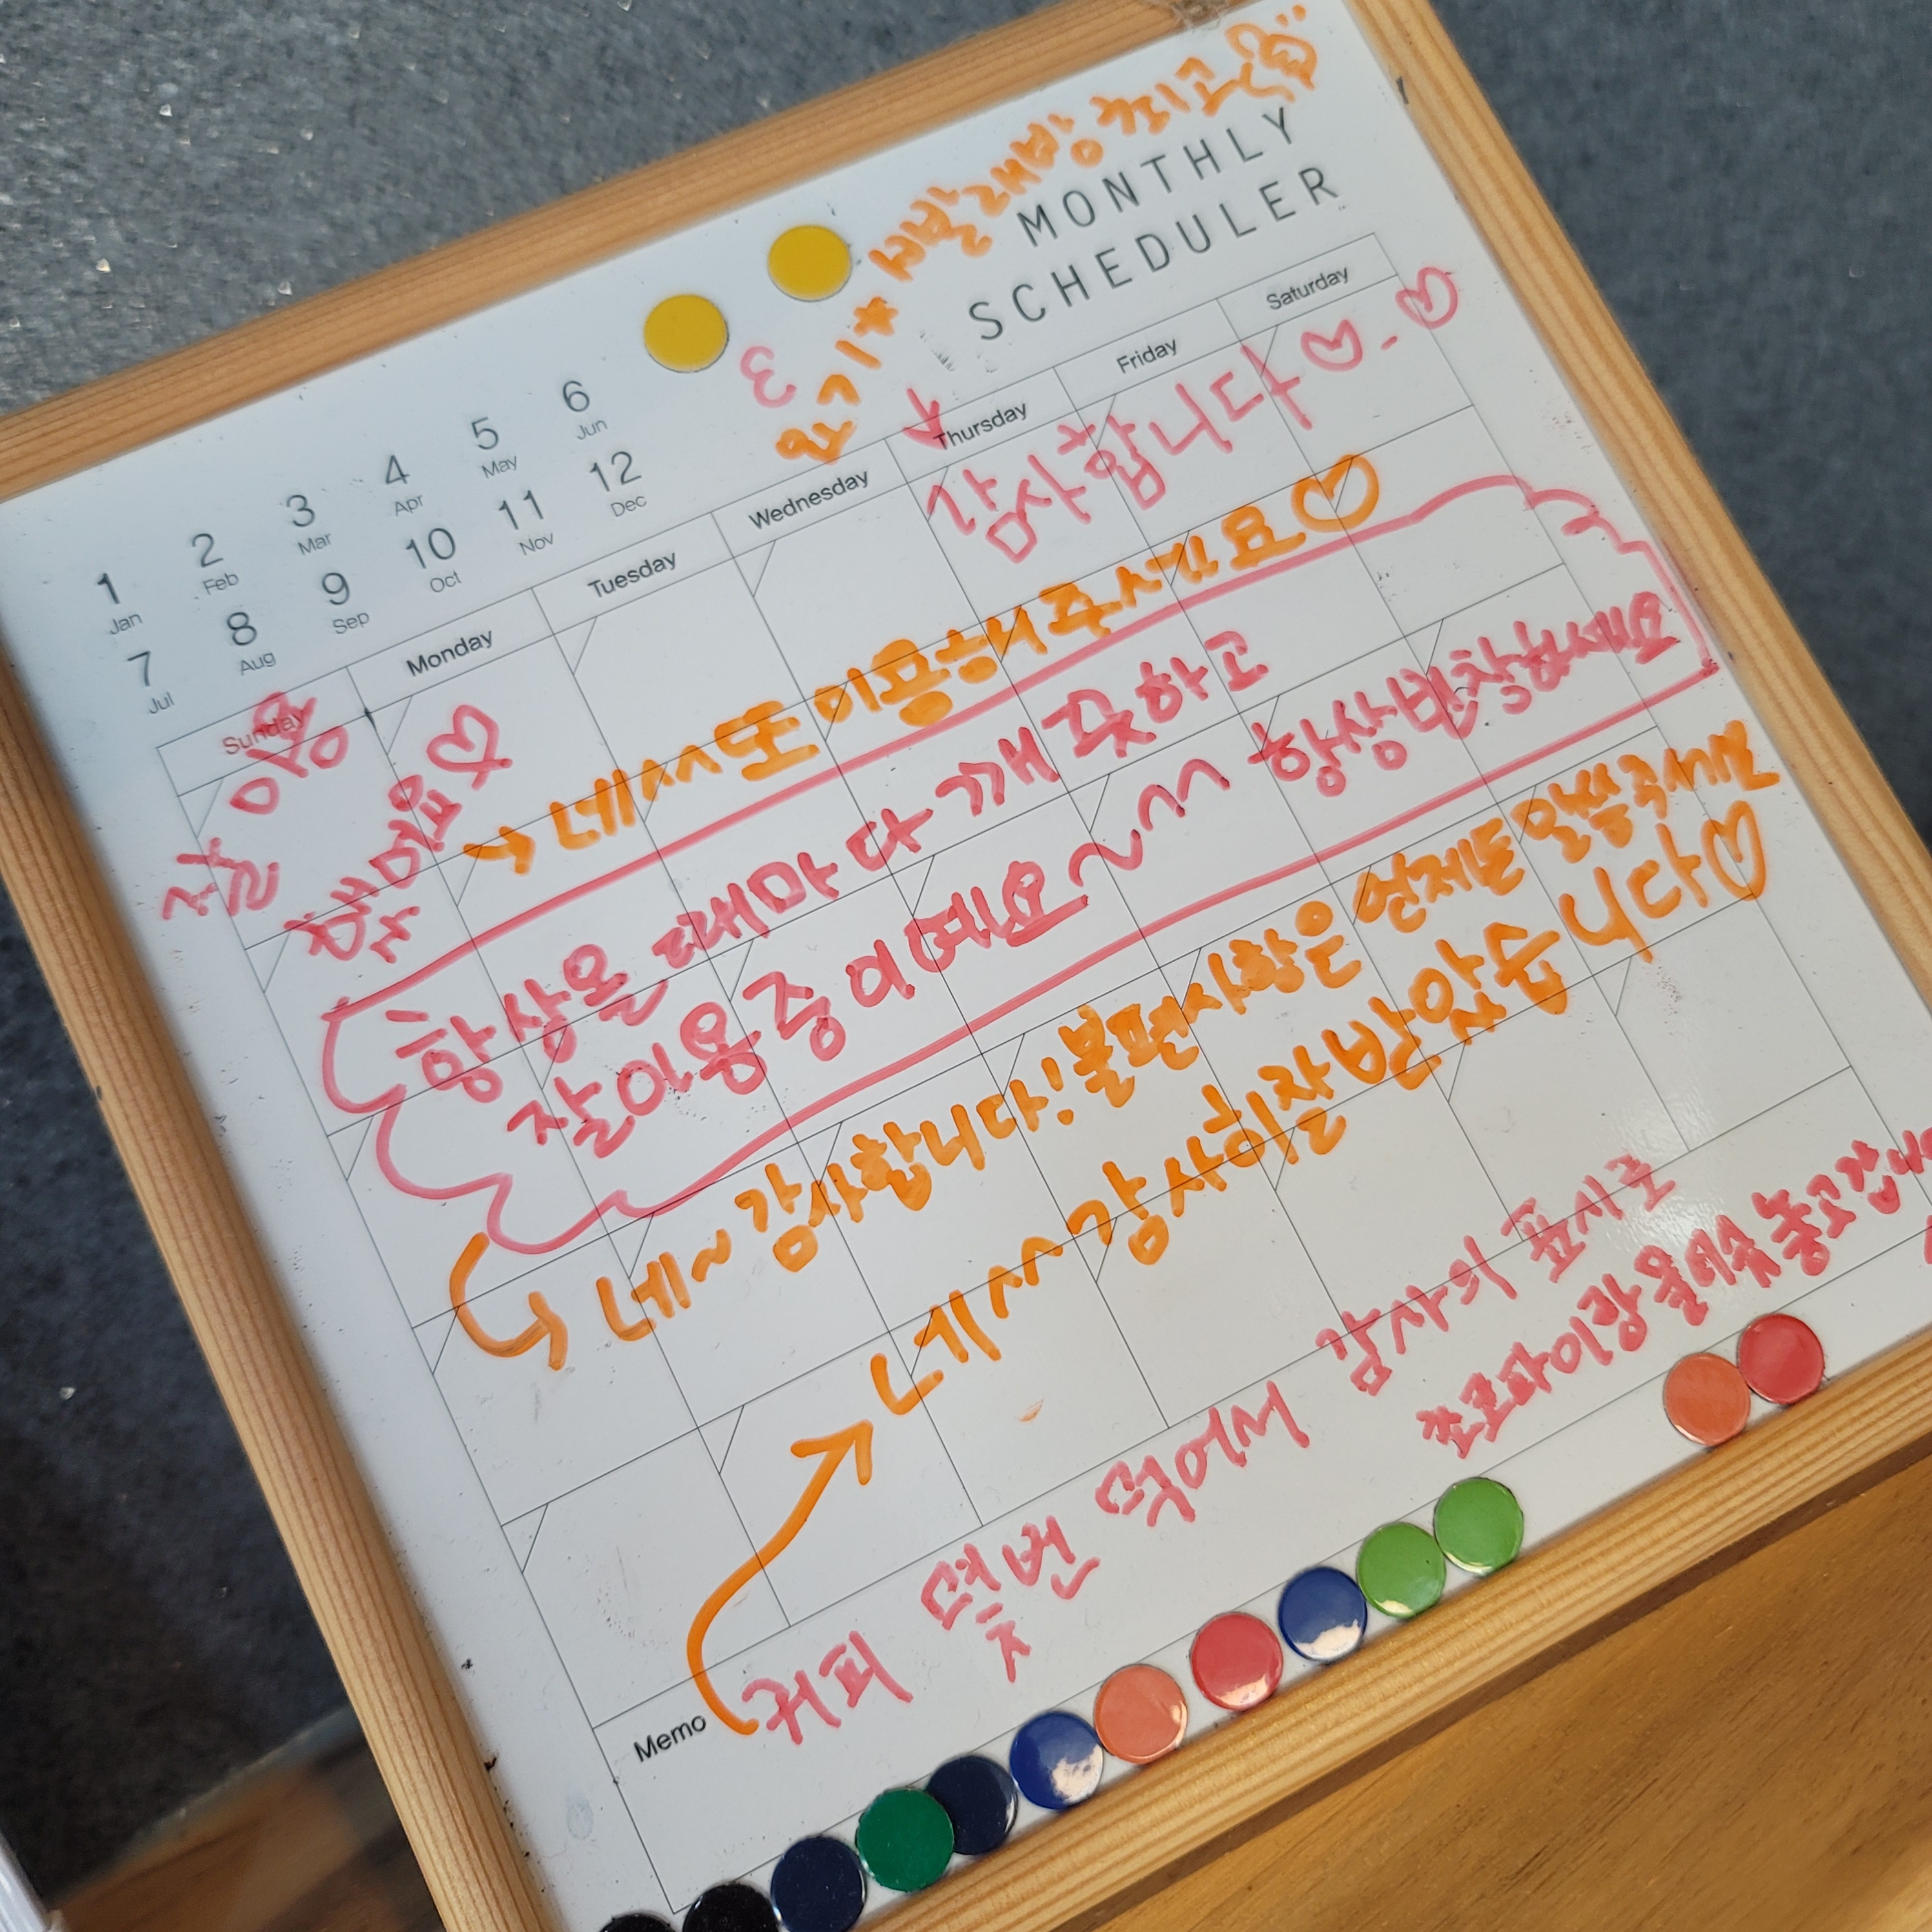 인기★빨래방 최고
MONTHLY
SCHEDULER
1 2 3 4 5 6
Jan Feb Mar Apr May Jun
7 8 9 10 11 12
Jul Aug Sep Oct Nov Dec
Sunday Monday Tuesday Wednesday Thursday Friday Saturday
감사합니다♡-♡
잘
이용
하세요♡
→ 네^^ 또 이용해주세요♡
항상 올 때마다 깨끗하고
잘 이용중이예요~^^ 항상 번창하세요
네~ 감사합니다! 불편사항은 언제든 말씀주세요
네^^ 감사히 잘 받았습니다♡
Memo
커피 몇번 먹어서 감사의 표시로
초코파이랑 물티슈 놓고갑니